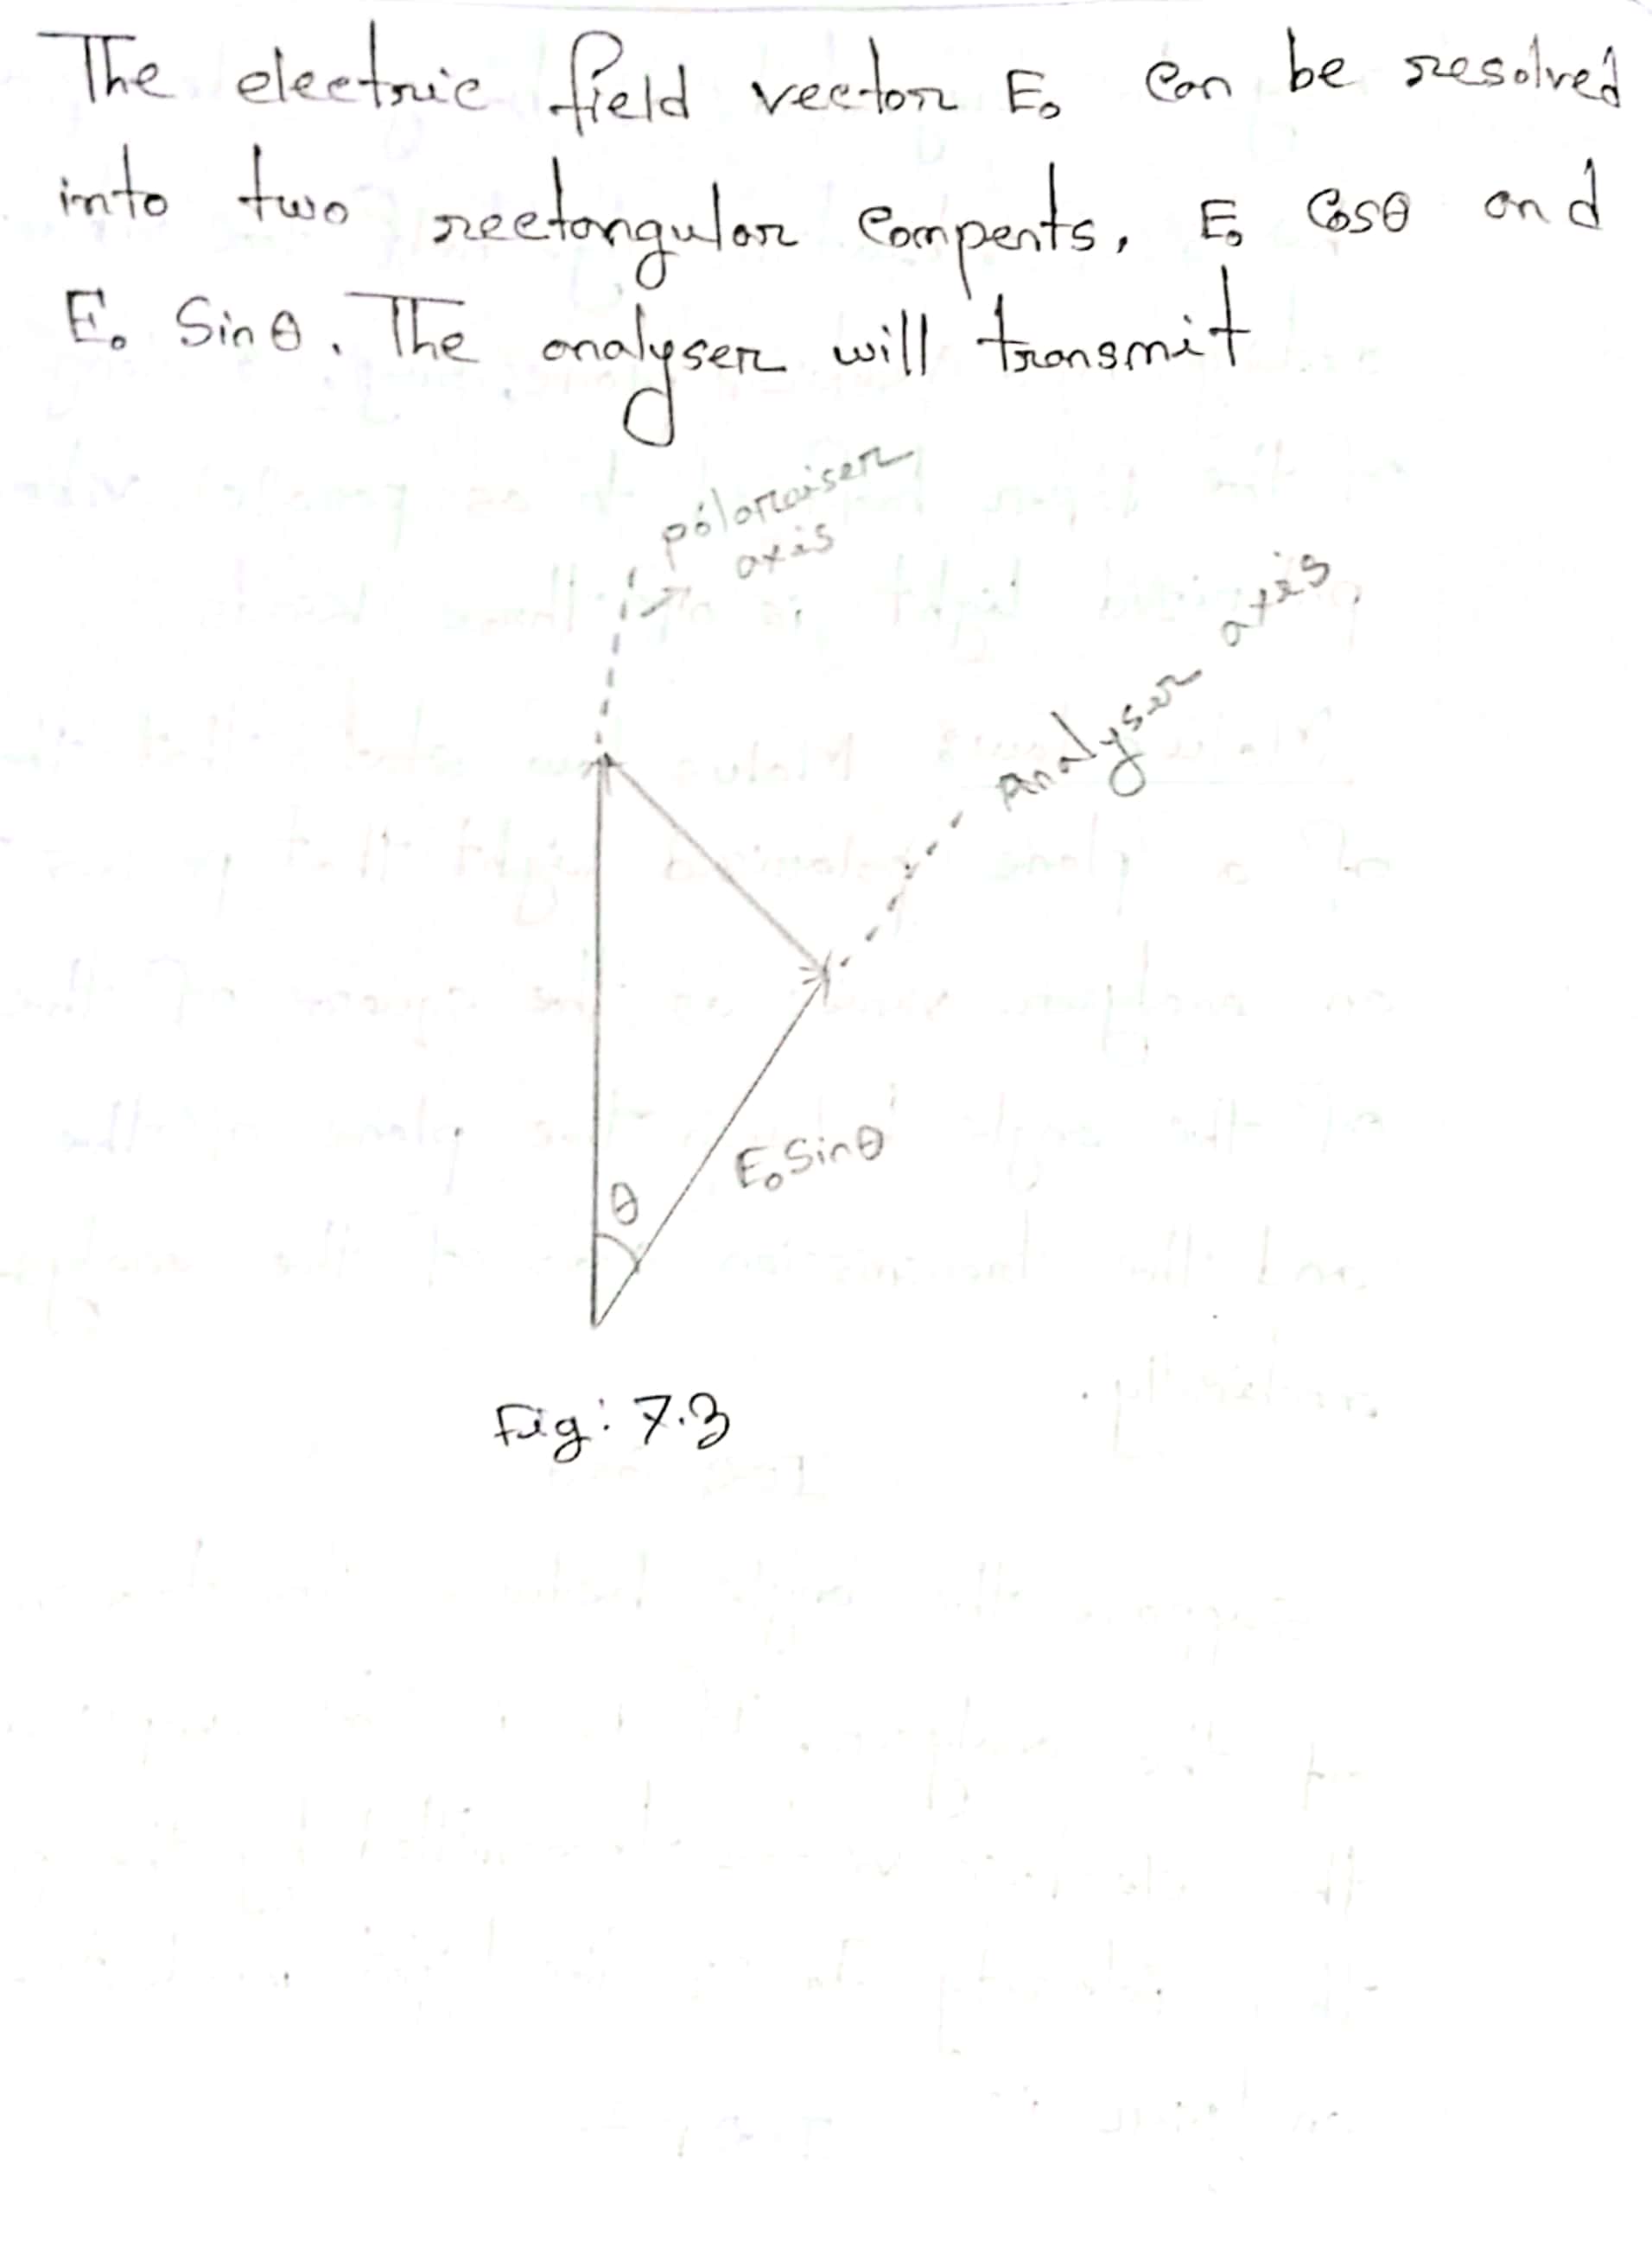 The electric field vector E₀ can be resolved
into two rectangular compents, E₀ Cosθ and
E₀ Sinθ. The analyser will transmit
polaraiser
axis
analyser axis
E₀ Sinθ
θ
Fig: 7.3